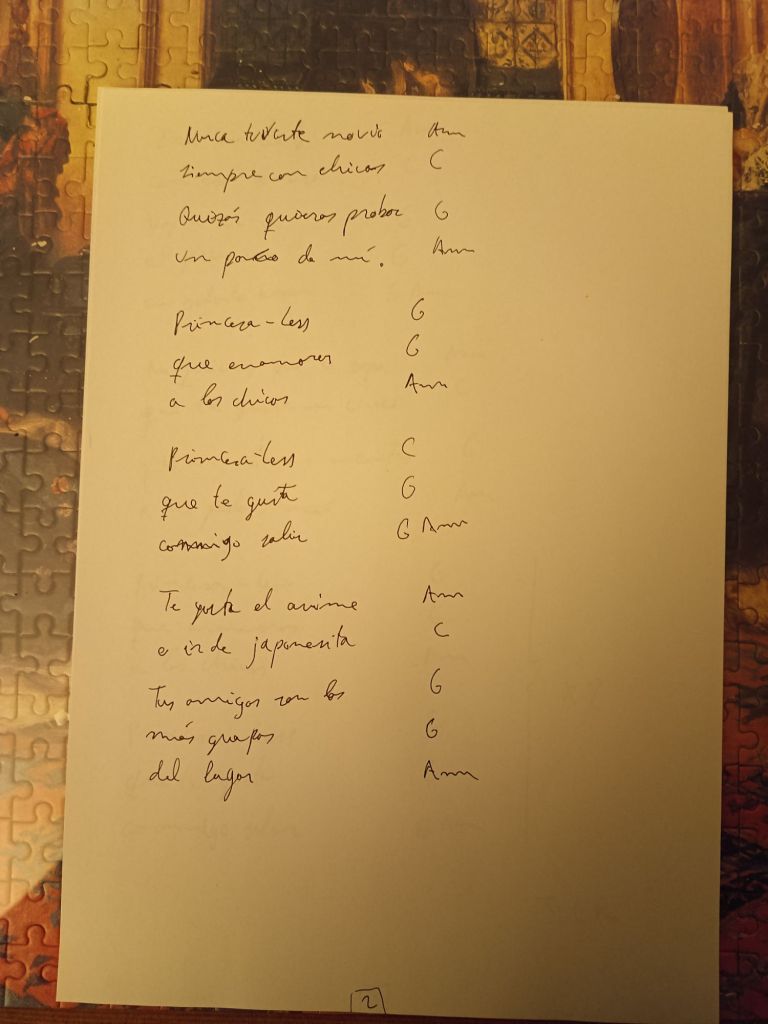 Nunca tuviste novio Am
siempre con chicas C
Quizás quieras probar G
un poco de mí. Am
Princesa-Less G
que enamores G
a los chicos Am
Princesa-Less C
que te gusta G
conmigo salir G Am
Te gusta el anime Am
e ir de japonesita C
Tus amigas son las G
más guapas G
del lugar Am
2